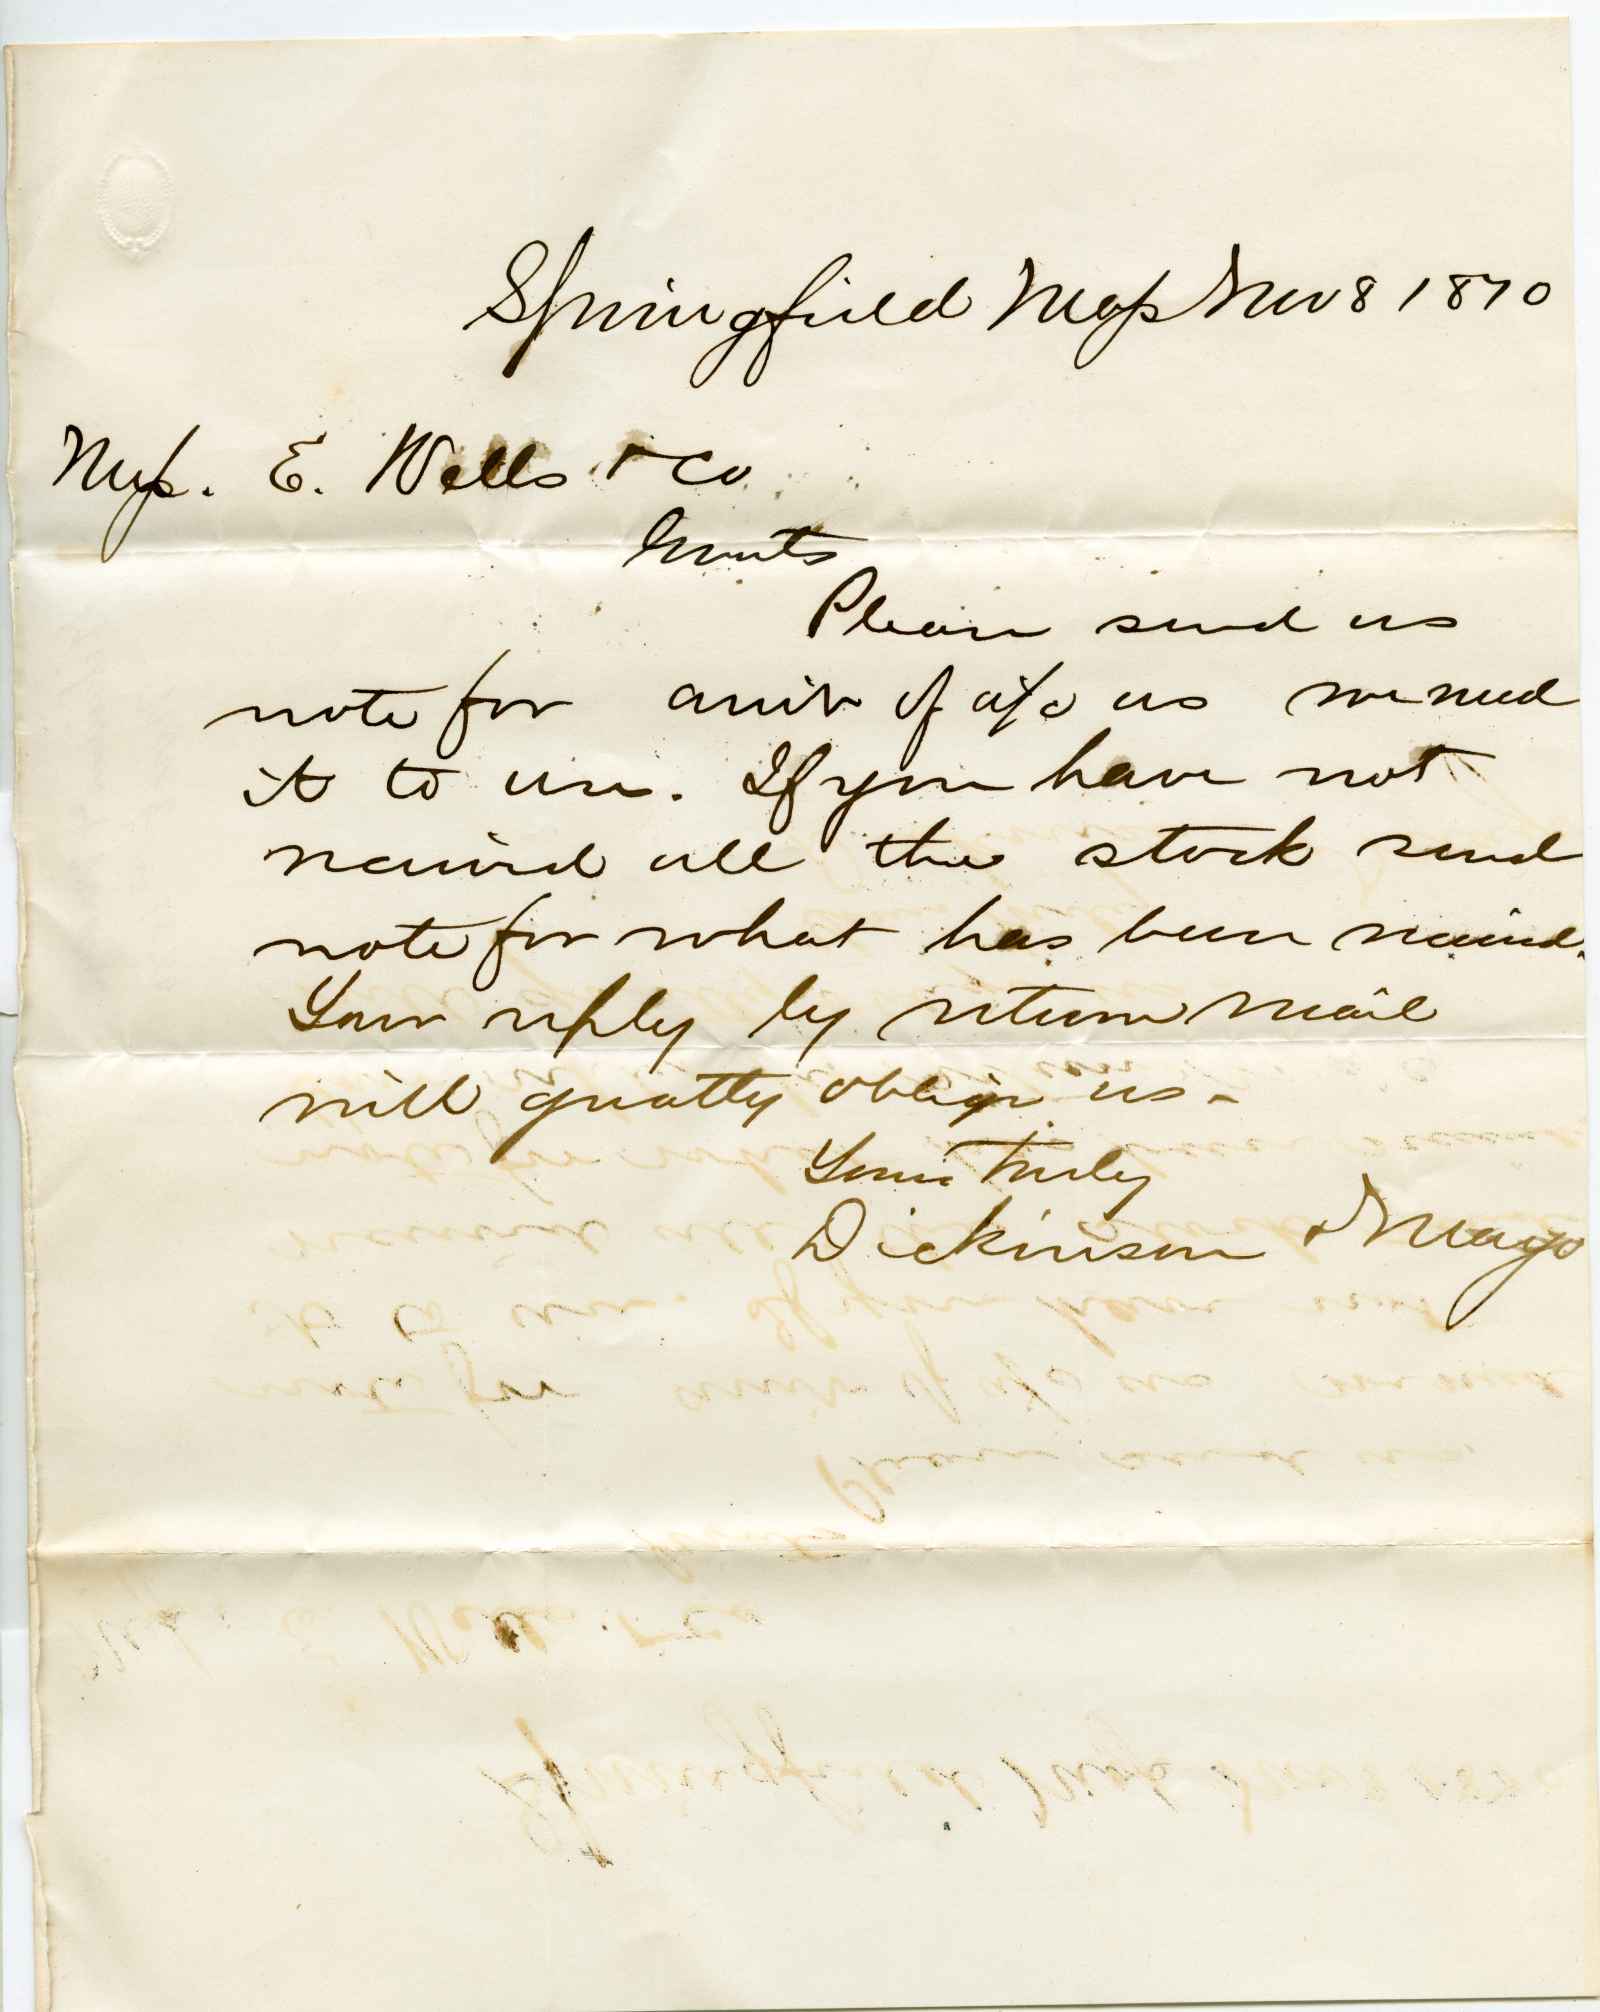 Springfield Mass Nov 8 1870
Mess. E. Wells & Co
Gents
Please send us
note for amt of a/c as we need
it to use. If you have not
received all the stock send
note for what has been received.
Your reply by return mail
will greatly oblige us -
Yours Truly
Dickinson & Mayo